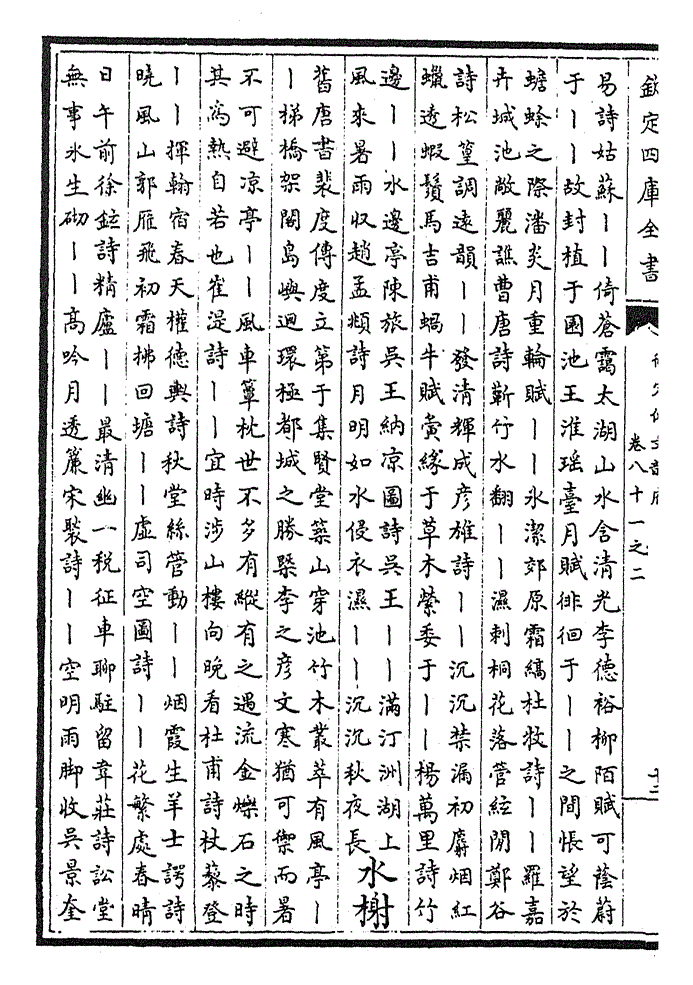 欽定四庫全書
卷八十一之二
易詩姑蘇丨丨倚蒼靄太湖山水含清光李德裕柳陌賦可蔭蔚
于丨丨故封植于園池王淮瑶臺月賦徘徊于丨丨之間悵望於
蟾蜍之際潘炎月重輪賦丨丨氷潔郊原霜縞杜牧詩丨丨羅嘉
卉城池敞麗譙曹唐詩蘄竹水翻丨丨濕刺桐花落管絃閒鄭谷
詩松篁調遠韻丨丨發清輝成彦雄詩丨丨沉沉禁漏初麝烟紅
蠟透蝦鬚馬吉甫蝸牛賦夤緣于草木縈委于丨丨楊萬里詩竹
邊丨丨水邊亭陳旅吳王納凉圖詩吳王丨丨滿汀洲湖上
風來暑雨收趙孟頫詩月明如水侵衣濕丨丨沉沉秋夜長
水榭
舊唐書裴度傳度立第于集賢堂築山穿池竹木叢萃有風亭丨
丨梯橋架閣島嶼迴環極都城之勝槩李之彦文寒猶可禦而暑
不可避凉亭丨丨風車簟枕世不多有縱有之遇流金爍石之時
其為熱自若也崔湜詩丨丨宜時涉山樓向晚看杜甫詩杖藜登
丨丨揮翰宿春天權德輿詩秋堂絲管動丨丨烟霞生羊士諤詩
曉風山郭雁飛初霜拂回塘丨丨虚司空圖詩丨丨花繁處春晴
日午前徐鉉詩精廬丨丨最清幽一税征車聊駐留韋莊詩訟堂
無事氷生砌丨丨髙吟月透簾宋褧詩丨丨空明雨脚收吳景奎